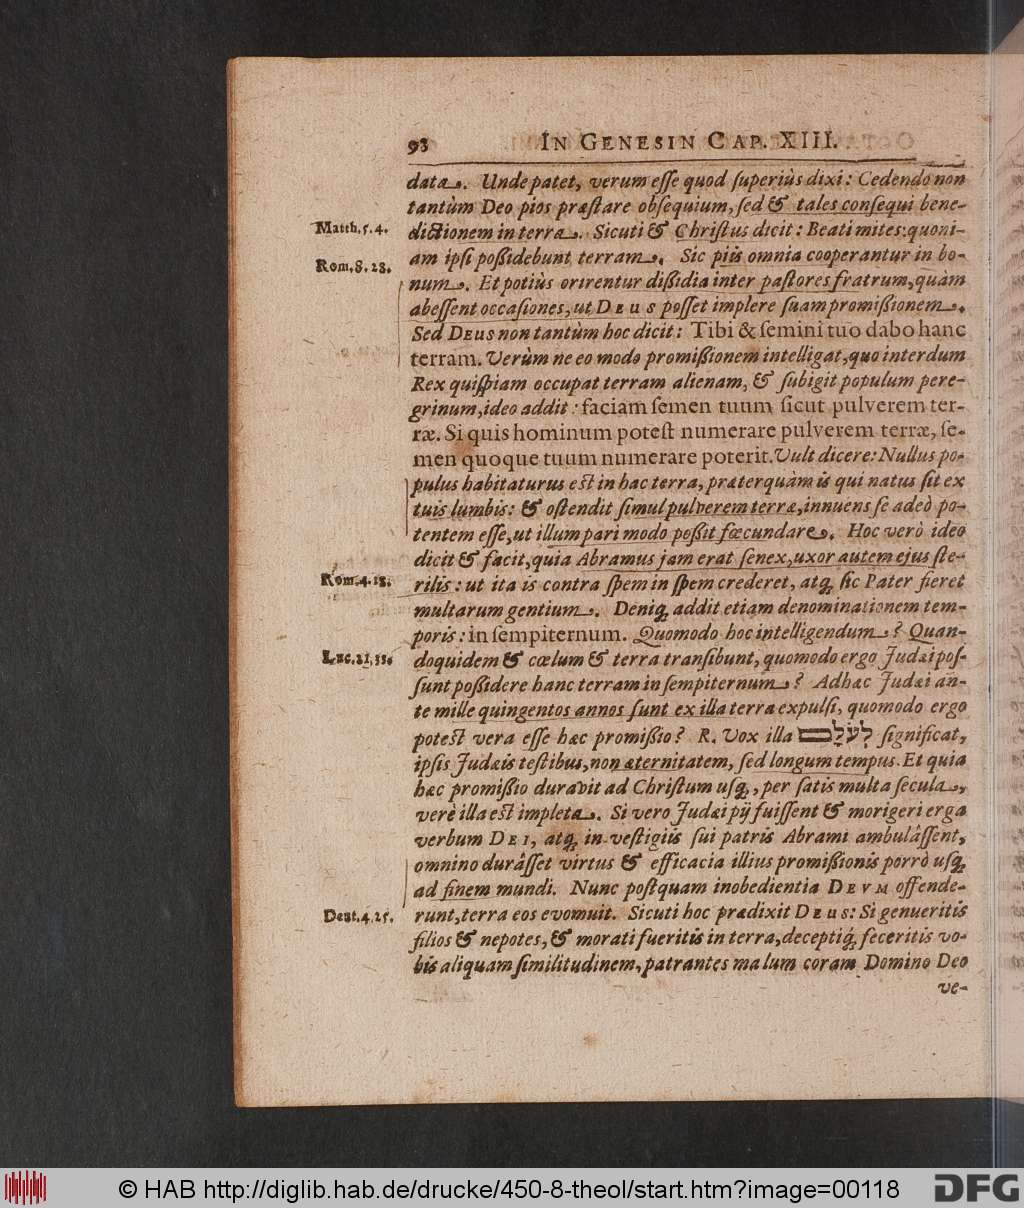 98 IN GENESIN CAP. XIII.
data. Unde patet, verum esse quod superiùs dixi: Cedendo non
tantùm Deo pios præstare obsequium, sed & tales consequi bene-
Matth. 5. 4. dictionem in terra. Sicuti & Christus dicit: Beati mites: quoni-
am ipsi possidebunt terram. Sic piis omnia cooperantur in bo-
Rom. 8. 28.
num. Et potiùs orirentur dissidia inter pastores fratrum, quàm
abessent occasiones, ut DEUS posset implere suam promissionem.
Sed DEUS non tantùm hoc dicit: Tibi & semini tuo dabo hanc
terram. Verùm ne eo modo promissionem intelligat, quo interdum
Rex quispiam occupat terram alienam, & subigit populum pere-
grinum, ideo addit: faciam semen tuum sicut pulverem ter-
ræ. Si quis hominum potest numerare pulverem terræ, se-
men quoque tuum numerare poterit. Vult dicere: Nullus po-
pulus habitaturus est in hac terra, præterquàm is qui natus sit ex
tuis lumbis: & ostendit simul pulverem terræ, innuens se adeò po-
tentem esse, ut illum pari modo possit fœcundare. Hoc verò ideo
dicit & facit, quia Abramus jam erat senex, uxor autem ejus ste-
Rom. 4. 18. rilis: ut ita is contra spem in spem crederet, atq; sic Pater fieret
multarum gentium. Deniq; addit etiam denominationem tem-
poris: in sempiternum. Quomodo hoc intelligendum? Quan-
Luc. 21, 33. doquidem & cœlum & terra transibunt, quomodo ergo Judæi pos-
sunt possidere hanc terram in sempiternum? Adhæc Judæi an-
te mille quingentos annos sunt ex illa terra expulsi, quomodo ergo
potest vera esse hæc promissio? R. Vox illa לְעֹלָם significat,
ipsis Judæis testibus, non æternitatem, sed longum tempus. Et quia
hæc promissio duravit ad Christum usq;, per satis multa secula,
verè illa est impleta. Si vero Judæi pij fuissent & morigeri erga
verbum DEI, atq; in vestigiis sui patris Abrami ambulâssent,
omnino durâsset virtus & efficacia illius promissionis porrò usq;
ad finem mundi. Nunc postquam inobedientia DEVM offende-
Deut. 4. 25. runt, terra eos evomuit. Sicuti hoc prædixit DEUS: Si genueritis
filios & nepotes, & morati fueritis in terra, deceptiq́; feceritis vo-
bis aliquam similitudinem, patrantes malum coram Domino Deo
ve-
© HAB http://diglib.hab.de/drucke/450-8-theol/start.htm?image=00118 DFG